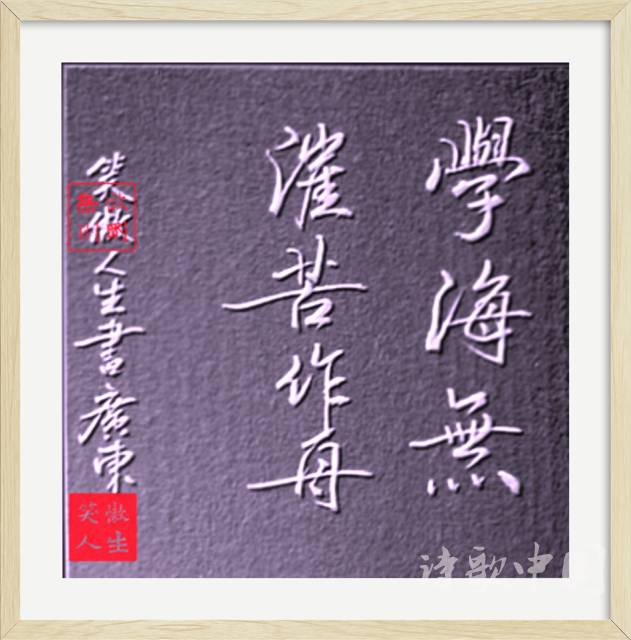 學海無
漼苦作舟
笑傲人生書廣東
笑傲
人生
诗歌中国